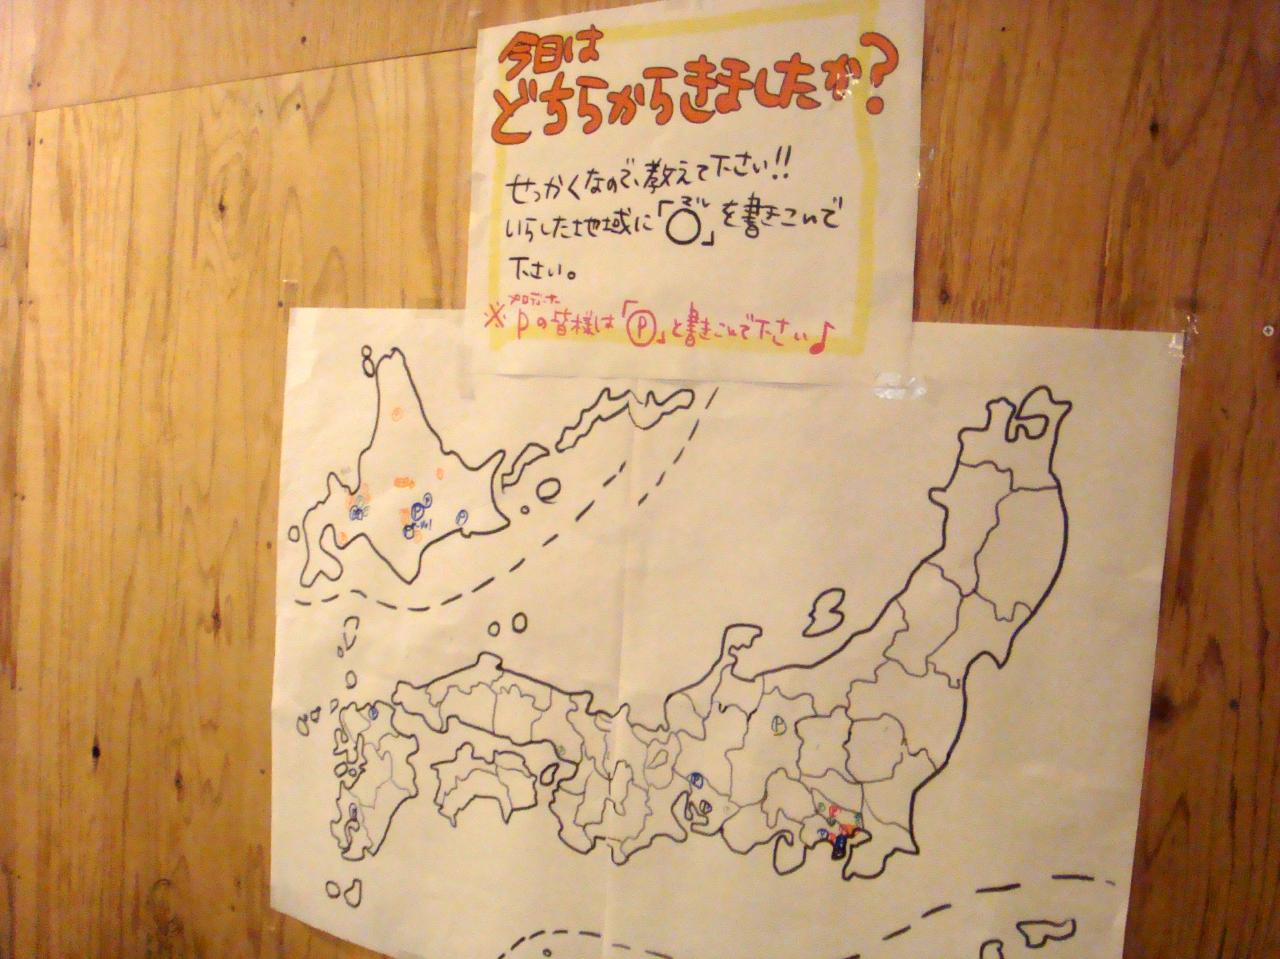 今日は
どちらからきましたか?
せっかくなので、教えて下さい!!
いらした地域に「○」を書きこんで
マル
下さい。
プロデューサー
※Pの皆様は「Ⓟ」と書きこんで下さい♪